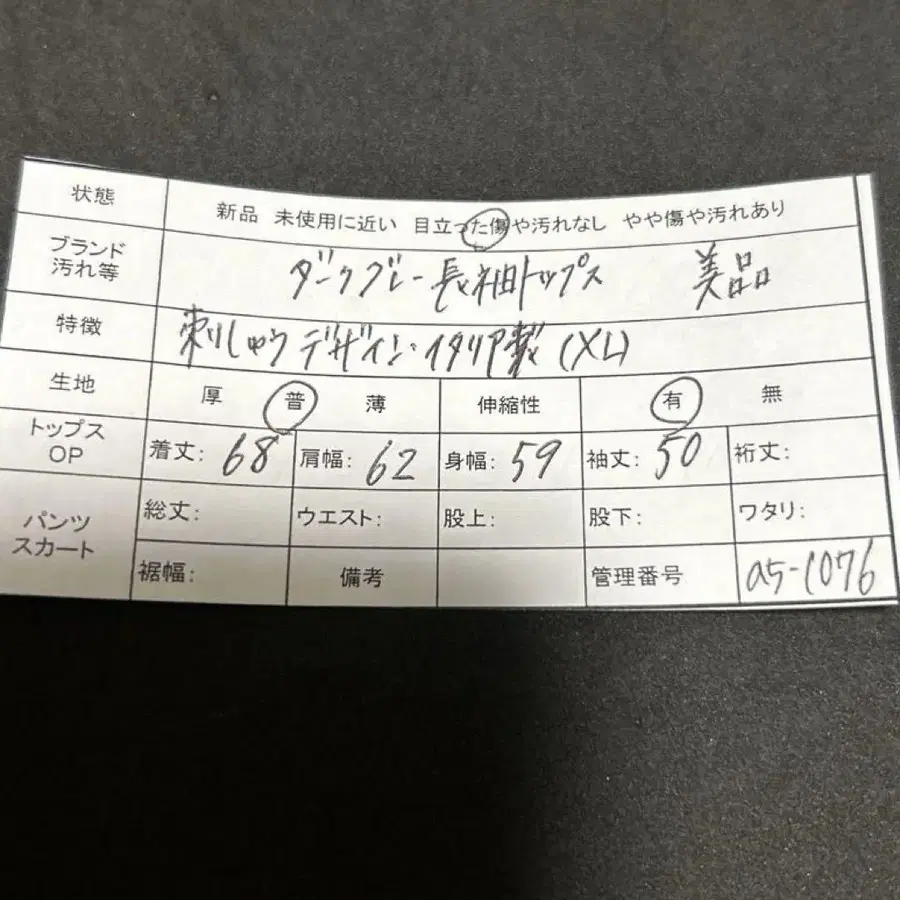 状態 新品 未使用に近い 目立った傷や汚れなし やや傷や汚れあり
ブランド
汚れ等
ダークグレー長袖トップス 美品
特徴 刺しゅうデザイン・イタリア製(XL)
生地 厚 普 薄 伸縮性 有 無
トップス
OP
着丈: 68 肩幅: 62 身幅: 59 袖丈: 50 裄丈:
パンツ
スカート
総丈: ウエスト: 股上: 股下: ワタリ:
裾幅: 備考 管理番号 a5-1076